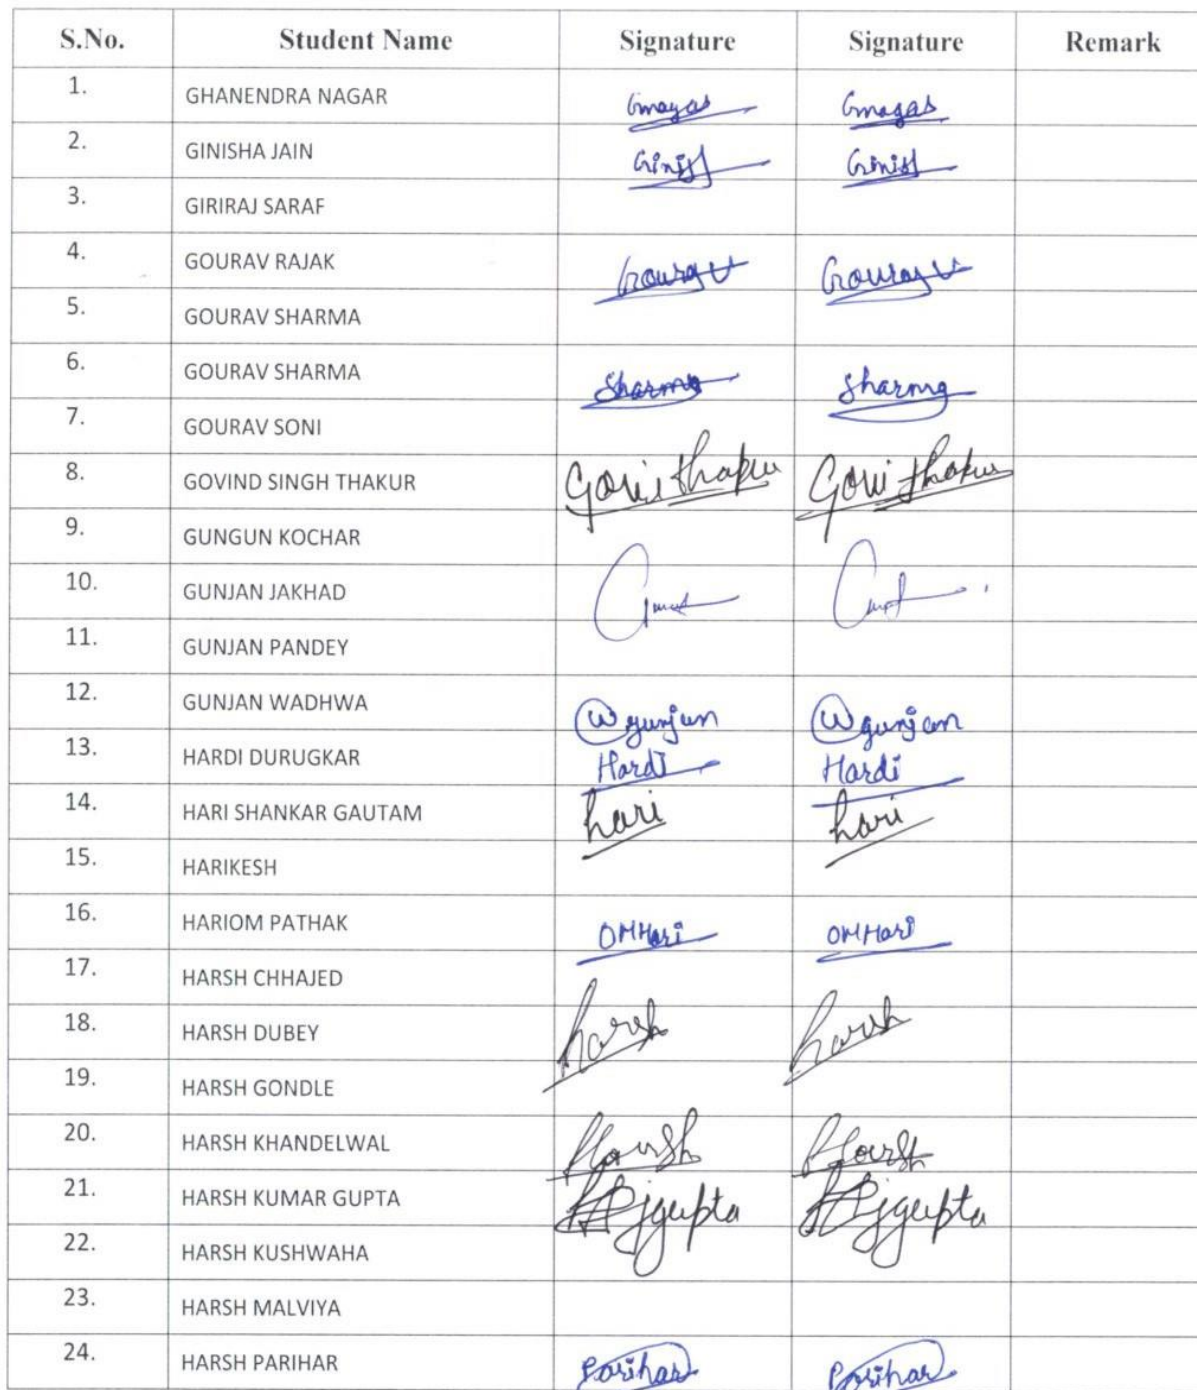 S.No. Student Name Signature Signature Remark
1. GHANENDRA NAGAR
2. GINISHA JAIN
3. GIRIRAJ SARAF
4. GOURAV RAJAK Gourav Gourav
5. GOURAV SHARMA
6. GOURAV SHARMA Sharma Sharma
7. GOURAV SONI
8. GOVIND SINGH THAKUR Govi thakur Govi thakur
9. GUNGUN KOCHAR
10. GUNJAN JAKHAD
11. GUNJAN PANDEY
12. GUNJAN WADHWA W gunjan W gunjan
13. HARDI DURUGKAR Hardi Hardi
14. HARI SHANKAR GAUTAM hari hari
15. HARIKESH
16. HARIOM PATHAK OMHari OMHari
17. HARSH CHHAJED
18. HARSH DUBEY harsh harsh
19. HARSH GONDLE
20. HARSH KHANDELWAL Harsh Harsh
21. HARSH KUMAR GUPTA
22. HARSH KUSHWAHA
23. HARSH MALVIYA
24. HARSH PARIHAR Parihar Parihar